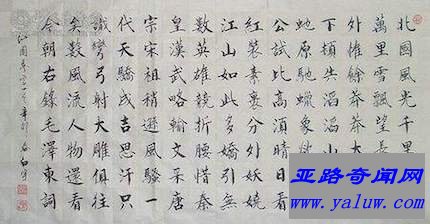 北國風光千里
萬里雪飄望長
外惟餘莽莽大
下頓失滔滔
蛇原馳蠟象
公試比高須晴日看
紅裝素裹分外妖嬈
江山如此多嬌引無
數英雄競折腰惜秦
皇漢武略輸文采唐
宗宋祖稍遜風騷一
代天驕成吉思汗只
識彎弓射大雕俱往
矣數風流人物還看
今朝右錄毛澤東詞
亚路奇闻网
www.yaluw.com